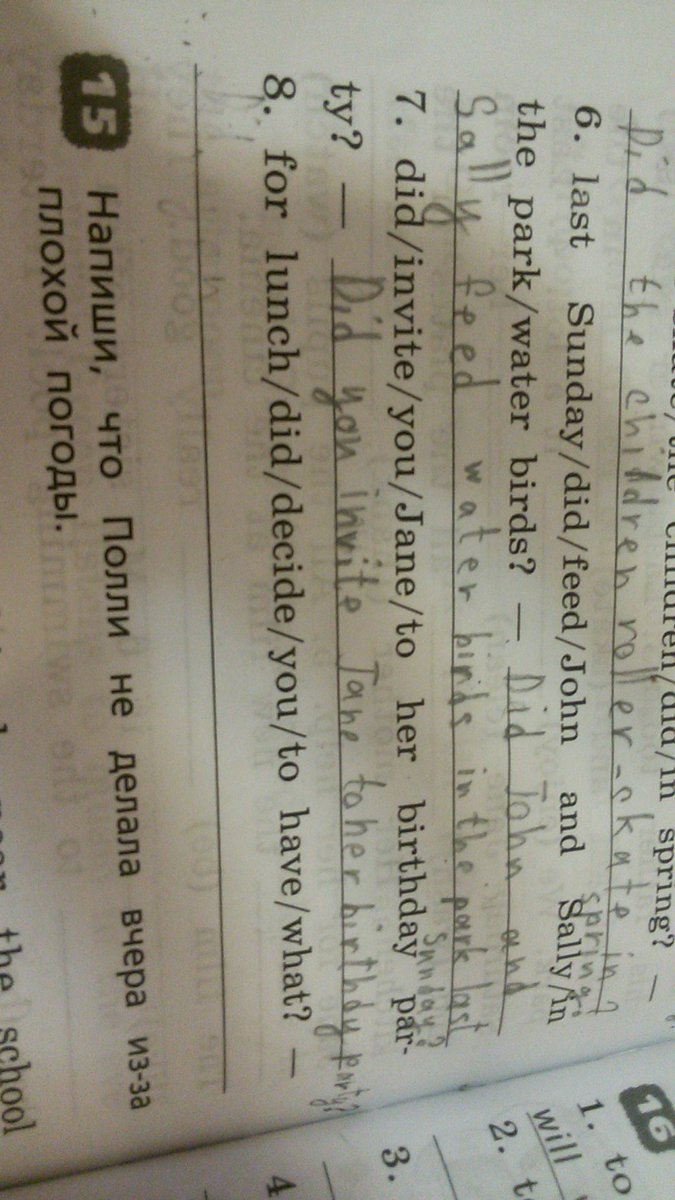 children/did/in spring? —
Did the children roller-skate in
spring?
6. last Sunday/did/feed/John and Sally/in
the park/water birds? — Did John and
Sally feed water birds in the park last
Sunday?
7. did/invite/you/Jane/to her birthday par-
ty? — Did you invite Jane to her birthdy party?
8. for lunch/did/decide/you/to have/what? —
15 Напиши, что Полли не делала вчера из-за
плохой погоды.
the school
16
1. to
will
2.
3.
4